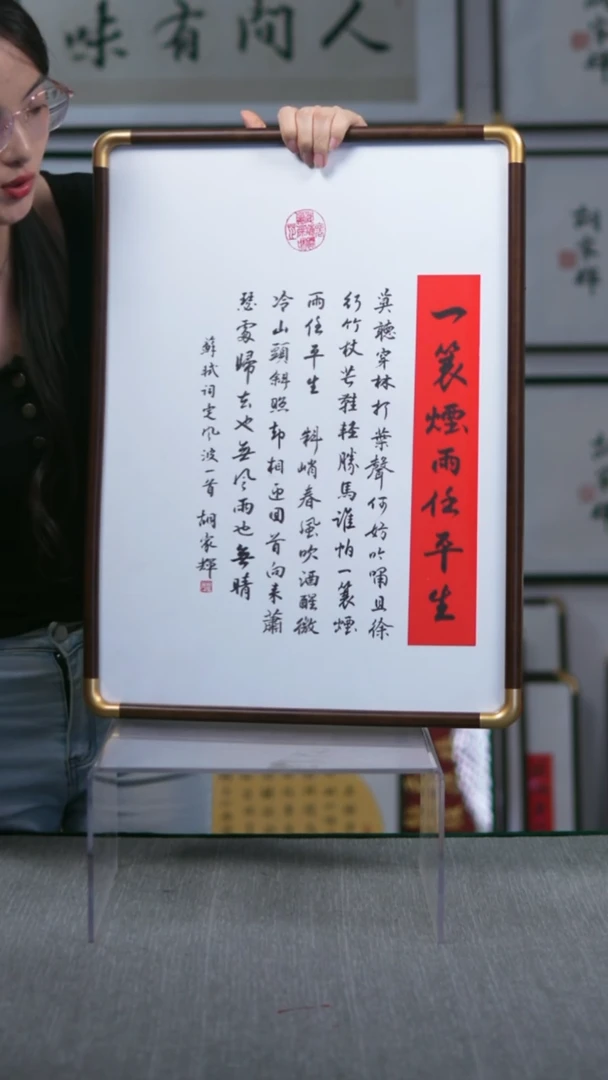 人间有味
一蓑煙雨任平生
莫聴穿林打葉聲何妨吟嘯且徐
行竹杖芒鞋輕勝馬誰怕一蓑煙
雨任平生 料峭春風吹酒醒微
冷山頭斜照却相迎回首向来蕭
瑟處歸去也無風雨也無晴
蘇軾词定风波一首 胡家輝
胡家輝